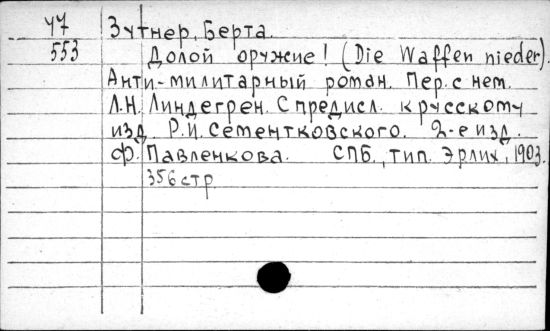 У7 Зутнер, Берта.
553 Долой оружие! (Die Waffen nieder).
Анти-милитарный роман. Пер. с нем.
Л.Н. Линдегрен. С предисл. к русскому
изд. Р.И. Сементковского. 2-е изд.
Ф. Павленкова. СПБ., тип. Эрлих, 1903.
356 стр